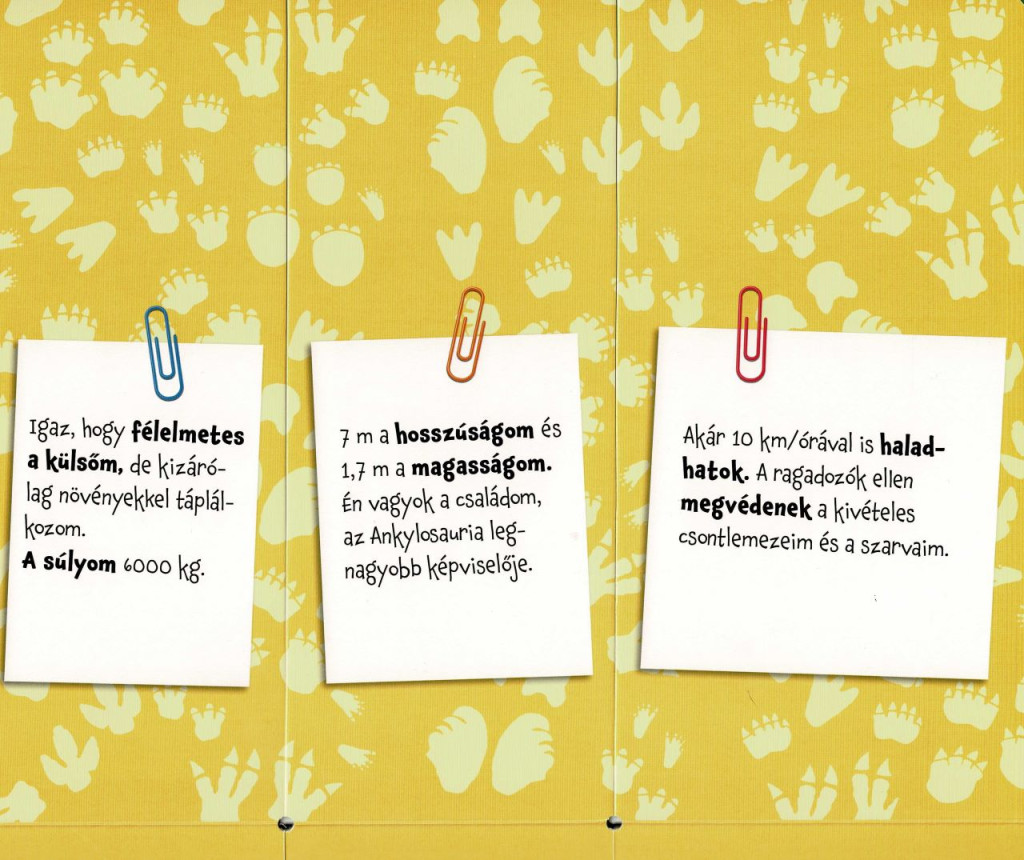 Igaz, hogy félelmetes
a külsőm, de kizáró-
lag növényekkel táplál-
kozom.
A súlyom 6000 kg.
7 m a hosszúságom és
1,7 m a magasságom.
Én vagyok a családom,
az Ankylosauria leg-
nagyobb képviselője.
Akár 10 km/órával is halad-
hatok. A ragadozók ellen
megvédenek a kivételes
csontlemezeim és a szarvaim.